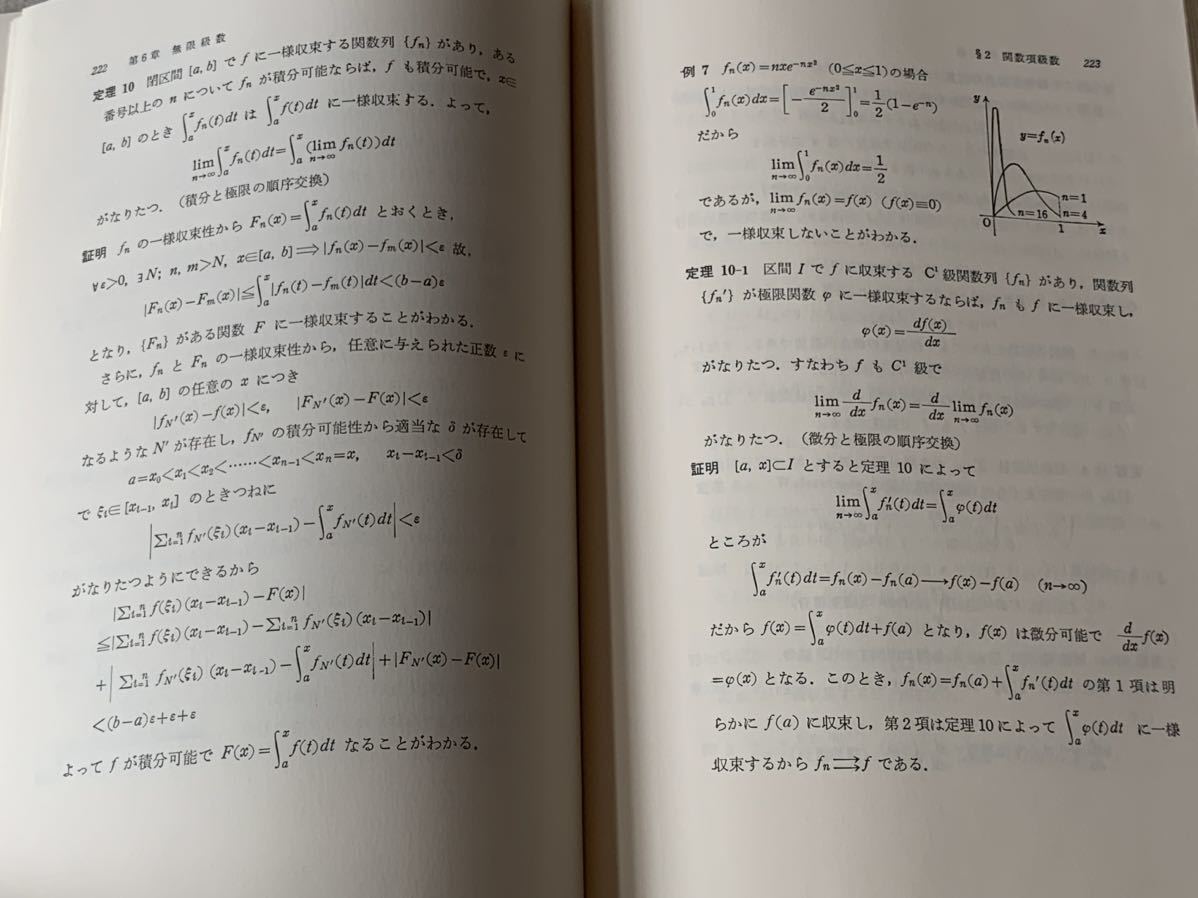 222 第6章 無限級数
定理 10 閉区間 [a, b] で f に一様収束する関数列 {fₙ} があり，ある
番号以上の n について fₙ が積分可能ならば，f も積分可能で，x∈
[a, b] のとき ∫ₐˣfₙ(t)dt は ∫ₐˣf(t)dt に一様収束する．よって，
lim_{n→∞}∫ₐˣfₙ(t)dt=∫ₐˣ(lim_{n→∞} fₙ(t))dt
がなりたつ．（積分と極限の順序交換）
証明 fₙ の一様収束性から Fₙ(x)=∫ₐˣfₙ(t)dt とおくとき，
∀ε>0, ∃N; n, m>N, x∈[a, b]⟹|fₙ(x)−fₘ(x)|<ε 故，
|Fₙ(x)−Fₘ(x)|≦∫ₐˣ|fₙ(t)−fₘ(t)|dt<(b−a)ε
となり，{Fₙ} がある関数 F に一様収束することがわかる．
さらに，fₙ と Fₙ の一様収束性から，任意に与えられた正数 ε に
対して，[a, b] の任意の x につき
|f_{N′}(x)−f(x)|<ε, |F_{N′}(x)−F(x)|<ε
なるような N′ が存在し，f_{N′} の積分可能性から適当な δ が存在して
a=x₀<x₁<x₂<……<xₙ₋₁<xₙ=x, xᵢ−xᵢ₋₁<δ
で ξᵢ∈[xᵢ₋₁, xᵢ] のときつねに
|∑ᵢ₌₁ⁿ f_{N′}(ξᵢ)(xᵢ−xᵢ₋₁)−∫ₐˣf_{N′}(t)dt|<ε
がなりたつようにできるから
|∑ᵢ₌₁ⁿ f(ξᵢ)(xᵢ−xᵢ₋₁)−F(x)|
≦|∑ᵢ₌₁ⁿ f(ξᵢ)(xᵢ−xᵢ₋₁)−∑ᵢ₌₁ⁿ f_{N′}(ξᵢ)(xᵢ−xᵢ₋₁)|
+|∑ᵢ₌₁ⁿ f_{N′}(ξᵢ)(xᵢ−xᵢ₋₁)−∫ₐˣf_{N′}(t)dt|+|F_{N′}(x)−F(x)|
<(b−a)ε+ε+ε
よって f が積分可能で F(x)=∫ₐˣf(t)dt なることがわかる．
§2 関数項級数 223
例 7 fₙ(x)=nxe^{−nx²} (0≦x≦1)の場合
∫₀¹fₙ(x)dx=[−e^{−nx²}/2]₀¹=1/2(1−e⁻ⁿ)
だから
lim_{n→∞}∫₀¹fₙ(x)dx=1/2
であるが，lim_{n→∞} fₙ(x)=f(x) (f(x)≡0)
で，一様収束しないことがわかる．
y
y=fₙ(x)
n=1
n=16
n=4
O
1
x
定理 10-1 区間 I で f に収束する C¹級関数列 {fₙ} があり，関数列
{fₙ′} が極限関数 φ に一様収束するならば，fₙ も f に一様収束し，
φ(x)=df(x)/dx
がなりたつ．すなわち f も C¹ 級で
lim_{n→∞} d/dx fₙ(x)=d/dx lim_{n→∞} fₙ(x)
がなりたつ．（微分と極限の順序交換）
証明 [a, x]⊂I とすると定理 10 によって
lim_{n→∞}∫ₐˣfₙ′(t)dt=∫ₐˣφ(t)dt
ところが
∫ₐˣfₙ′(t)dt=fₙ(x)−fₙ(a)⟶f(x)−f(a) (n→∞)
だから f(x)=∫ₐˣφ(t)dt+f(a) となり，f(x) は微分可能で d/dx f(x)
=φ(x) となる．このとき，fₙ(x)=fₙ(a)+∫ₐˣfₙ′(t)dt の第1項は明
らかに f(a) に収束し，第2項は定理10によって ∫ₐˣφ(t)dt に一様
収束するから fₙ⇉f である．